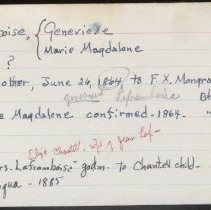 oise, { Genevieve
Marie Magdalene
?
other, June 26, 1864, to F. X. Mongra
Genevieve Laframboise
e Magdalene confirmed - 1864.
Eliza Chantell, wife of Jean Laf-
rs. Laframboise" godm. to Chantell child -
qua - 1885